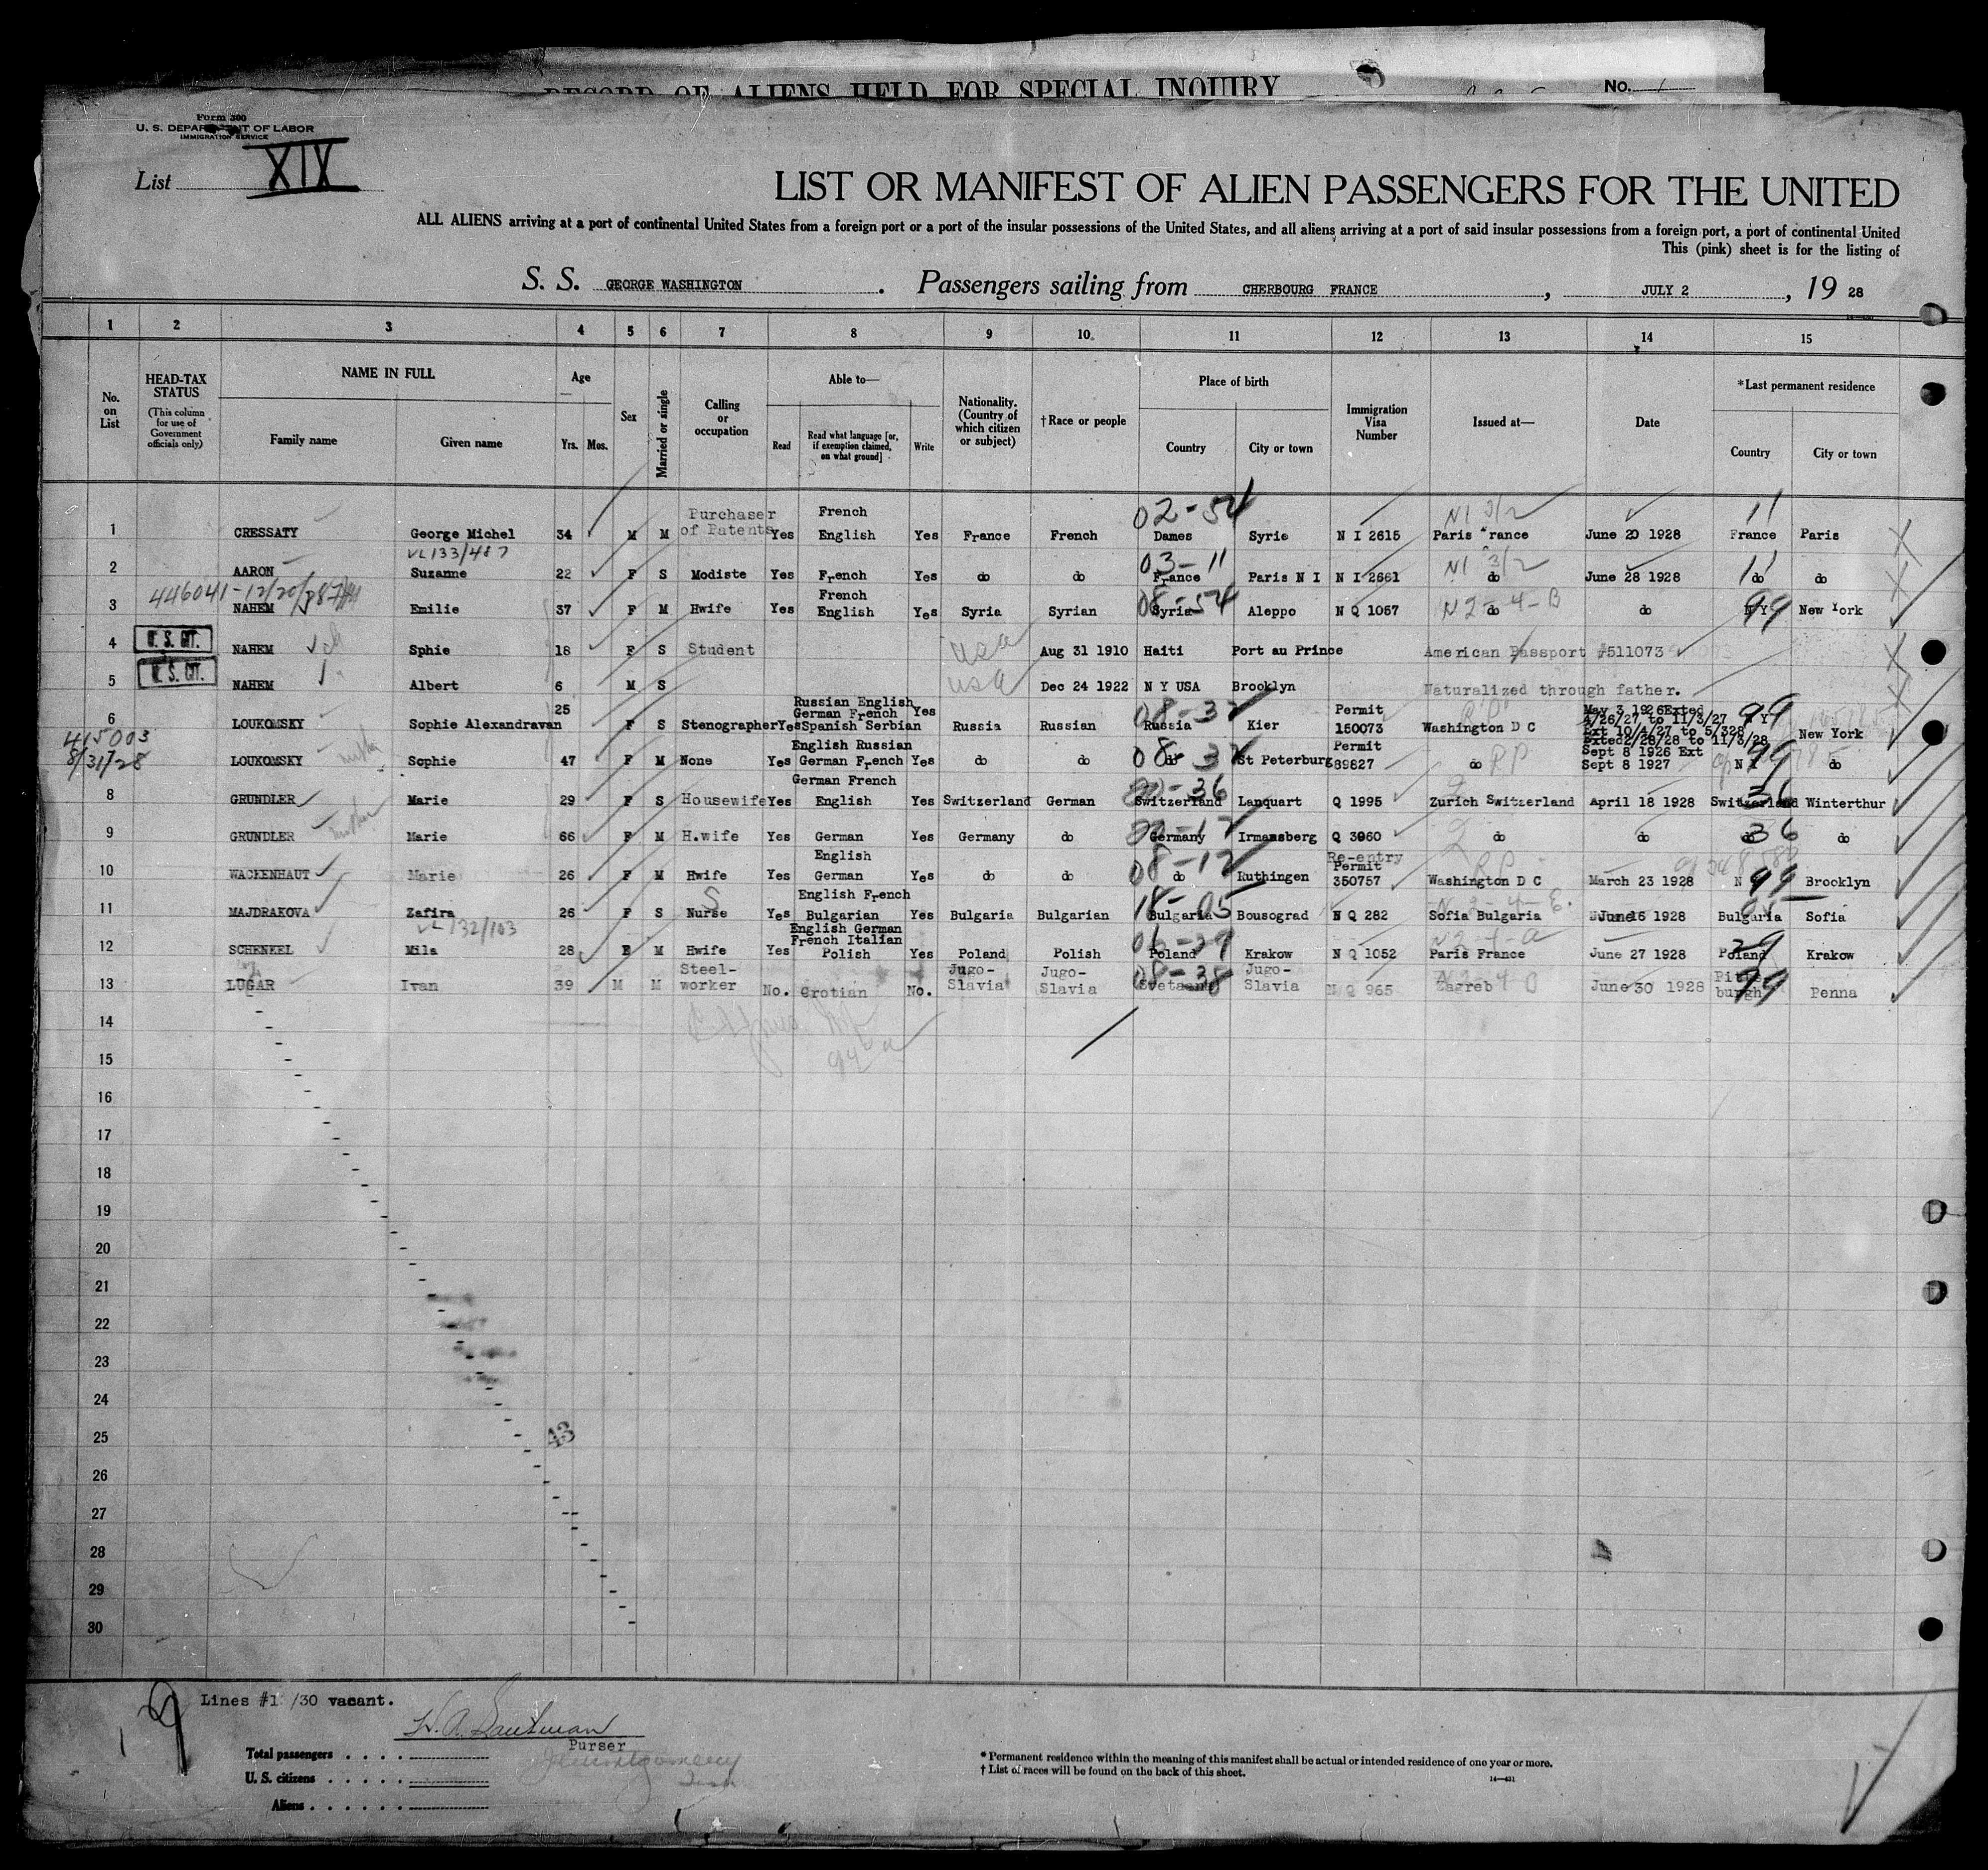 RECORD OF ALIENS HELD FOR SPECIAL INQUIRY
No.
Form 500
U. S. DEPARTMENT OF LABOR
IMMIGRATION SERVICE
List XIX
LIST OR MANIFEST OF ALIEN PASSENGERS FOR THE UNITED
ALL ALIENS arriving at a port of continental United States from a foreign port or a port of the insular possessions of the United States, and all aliens arriving at a port of said insular possessions from a foreign port, a port of continental United
This (pink) sheet is for the listing of
S. S. GEORGE WASHINGTON . Passengers sailing from CHERBOURG FRANCE , JULY 2 , 19 28
1 2 3 4 5 6 7 8 9 10 11 12 13 14 15
No. on List
HEAD-TAX STATUS
(This column for use of Government officials only)
NAME IN FULL
Family name Given name
Age
Yrs. Mos.
Sex
Married or single
Calling or occupation
Able to—
Read
Read what language [or, if exemption claimed, on what ground]
Write
Nationality. (Country of which citizen or subject)
†Race or people
Place of birth
Country City or town
Immigration Visa Number
Issued at—
Date
*Last permanent residence
Country City or town
02-54 NI 3/2 11
1 CRESSATY George Michel 34 M M Purchaser of Patents Yes French English Yes France French Dames Syrie N I 2615 Paris France June 20 1928 France Paris
VL 133/487
03-11 NI 3/2 11
2 AARON Suzanne 22 F S Modiste Yes French Yes do do France Paris N I N I 2661 do June 28 1928 do do
446041-12/20/
08-54 N 2-4-B 99
3 NAHEM Emilie 37 F M Hwife Yes French English Yes Syria Syrian Syria Aleppo N Q 1057 do do N Y New York
U. S. CIT.
4 NAHEM Sphie 18 F S Student USA Aug 31 1910 Haiti Port au Prince American Passport #511073
U. S. CIT.
5 NAHEM Albert 6 M S USA Dec 24 1922 N Y USA Brooklyn Naturalized through father.
08-37 RP 99
6 LOUKOMSKY Sophie Alexandravan 25 F S Stenographer Yes Russian English German French Spanish Serbian Yes Russia Russian Russia Kier Permit 150073 Washington D C May 3 1926Exted 4/26/27 to 11/3/27 Ext 10/4/27 to 5/328 Exted2/28/28 to 11/3/28 N Y New York
415003
8/31/28
mother
08-37 RP 99
LOUKOMSKY Sophie 47 F M None Yes English Russian German French Yes do do do St Peterburg Permit 89827 do Sept 8 1926 Ext Sept 8 1927 N Y do
36 36
8 GRUNDLER Marie 29 F S Housewife Yes German French English Yes Switzerland German Switzerland Lanquart Q 1995 Zurich Switzerland April 18 1928 Switzerland Winterthur
mother
36
9 GRUNDLER Marie 66 F M H.wife Yes German Yes Germany do Germany Irmansberg Q 3960 do do do do
08-12 RP 99
10 WACKENHAUT Marie 26 F M Hwife Yes English German Yes do do do Ruthingen Re-entry Permit 350757 Washington D C March 23 1928 N Y Brooklyn
18-05 N 2-4-E. 05
11 MAJDRAKOVA Zafira 26 F S Nurse Yes English French Bulgarian Yes Bulgaria Bulgarian Bulgaria Bousograd N Q 282 Sofia Bulgaria June 15 1928 Bulgaria Sofia
VL 132/103
N 2-4-a 29
12 SCHENKEL Mila 28 F M Hwife Yes English German French Italian Polish Yes Poland Polish Poland Krakow N Q 1052 Paris France June 27 1928 Poland Krakow
08-38 99
13 LUGAR Ivan 39 M M Steel-worker No. Crotian No. Jugo-Slavia Jugo-Slavia Jugo-Slavia N Q 965 Zagreb June 30 1928 Pittsburgh Penna
14
15
16
17
18
19
20
21
22
23
24
25
43
26
27
28
29
30
Lines #1 /30 vacant.
Purser
Total passengers
U. S. citizens
Aliens
* Permanent residence within the meaning of this manifest shall be actual or intended residence of one year or more.
† List of races will be found on the back of this sheet.
14—431